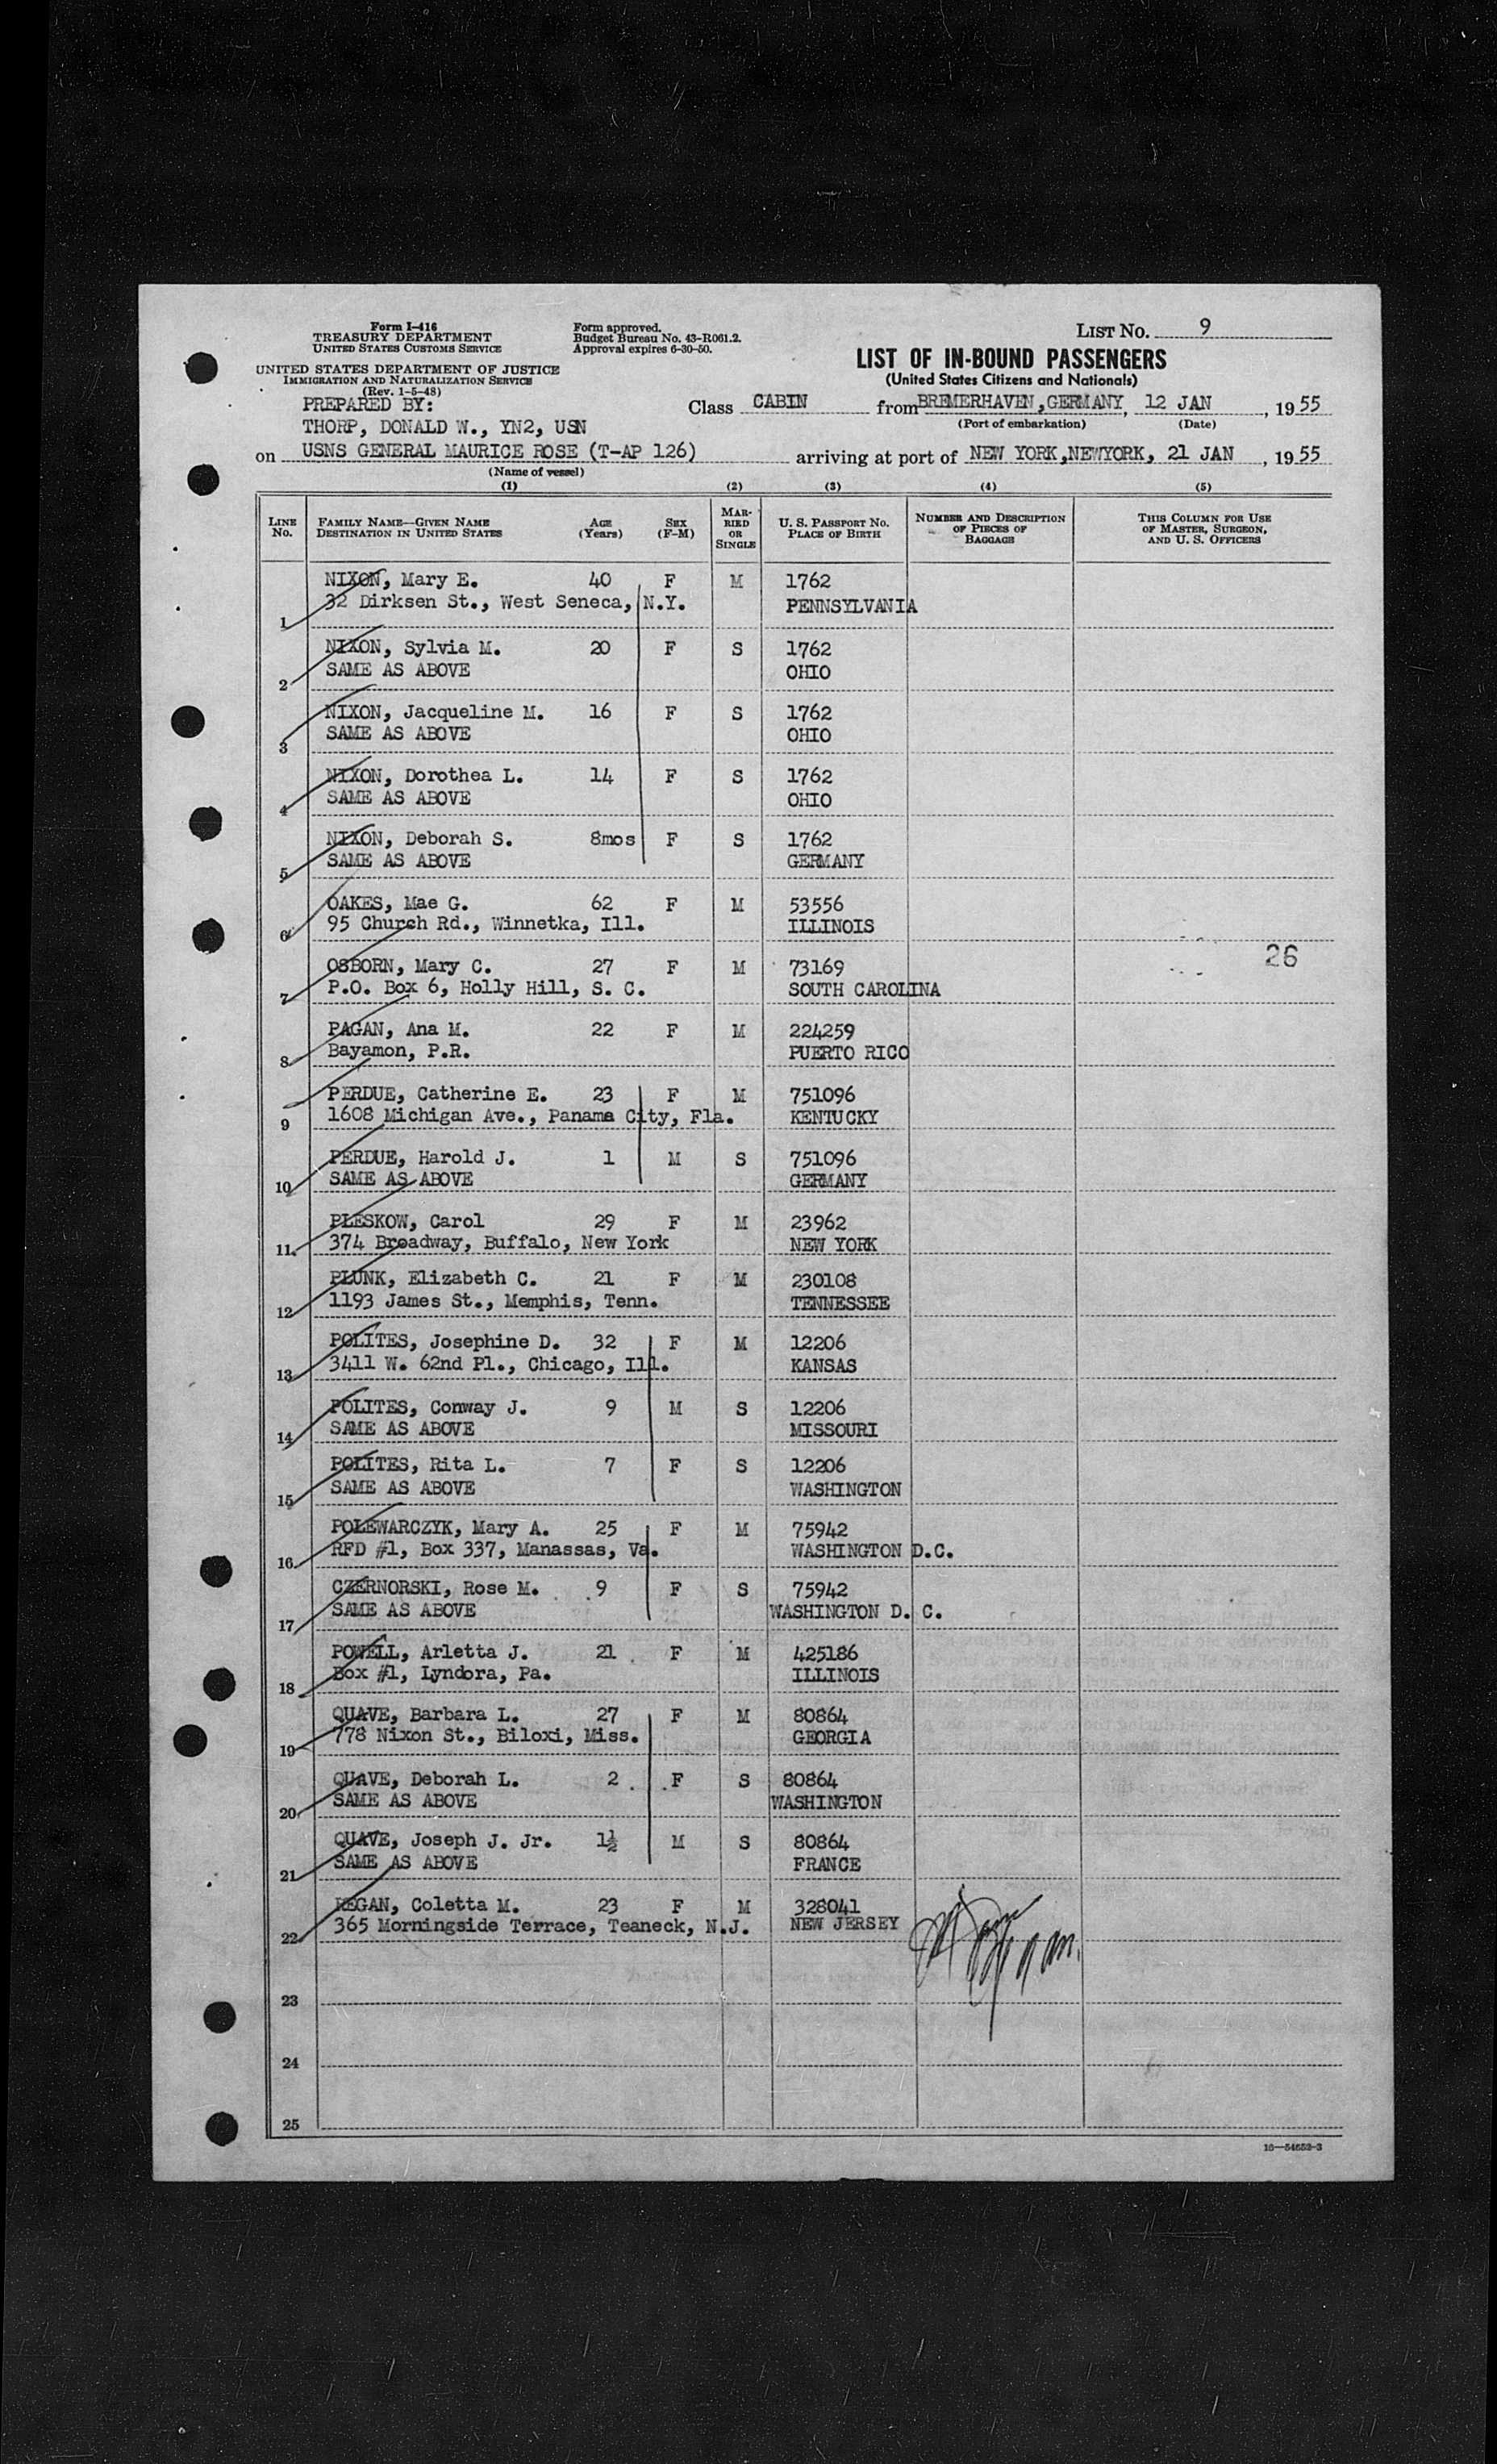 Form I-416
TREASURY DEPARTMENT
UNITED STATES CUSTOMS SERVICE
UNITED STATES DEPARTMENT OF JUSTICE
IMMIGRATION AND NATURALIZATION SERVICE
(Rev. 1-5-48)
Form approved.
Budget Bureau No. 43-R061.2.
Approval expires 6-30-50.
LIST NO. 9
LIST OF IN-BOUND PASSENGERS
(United States Citizens and Nationals)
PREPARED BY:
THORP, DONALD W., YN2, USN
Class CABIN from BREMERHAVEN, GERMANY, 12 JAN, 1955
(Port of embarkation) (Date)
on USNS GENERAL MAURICE ROSE (T-AP 126) arriving at port of NEW YORK, NEWYORK, 21 JAN, 1955
(Name of vessel)
(1) (2) (3) (4) (5)
LINE NO. FAMILY NAME—GIVEN NAME DESTINATION IN UNITED STATES AGE (Years) SEX (F-M) MARRIED OR SINGLE U. S. PASSPORT NO. PLACE OF BIRTH NUMBER AND DESCRIPTION OF PIECES OF BAGGAGE THIS COLUMN FOR USE OF MASTER, SURGEON, AND U. S. OFFICERS
NIXON, Mary E. 40 F M 1762
1 32 Dirksen St., West Seneca, N.Y. PENNSYLVANIA
NIXON, Sylvia M. 20 F S 1762
2 SAME AS ABOVE OHIO
NIXON, Jacqueline M. 16 F S 1762
3 SAME AS ABOVE OHIO
NIXON, Dorothea L. 14 F S 1762
4 SAME AS ABOVE OHIO
NIXON, Deborah S. 8mos F S 1762
5 SAME AS ABOVE GERMANY
OAKES, Mae G. 62 F M 53556
6 95 Church Rd., Winnetka, Ill. ILLINOIS
26
OSBORN, Mary C. 27 F M 73169
7 P.O. Box 6, Holly Hill, S. C. SOUTH CAROLINA
PAGAN, Ana M. 22 F M 224259
8 Bayamon, P.R. PUERTO RICO
PERDUE, Catherine E. 23 F M 751096
9 1608 Michigan Ave., Panama City, Fla. KENTUCKY
PERDUE, Harold J. 1 M S 751096
10 SAME AS ABOVE GERMANY
PLESKOW, Carol 29 F M 23962
11 374 Broadway, Buffalo, New York NEW YORK
PLUNK, Elizabeth C. 21 F M 230108
12 1193 James St., Memphis, Tenn. TENNESSEE
POLITES, Josephine D. 32 F M 12206
13 3411 W. 62nd Pl., Chicago, Ill. KANSAS
POLITES, Conway J. 9 M S 12206
14 SAME AS ABOVE MISSOURI
POLITES, Rita L. 7 F S 12206
15 SAME AS ABOVE WASHINGTON
POLEWARCZYK, Mary A. 25 F M 75942
16 RFD #1, Box 337, Manassas, Va. WASHINGTON D.C.
CZERNORSKI, Rose M. 9 F S 75942
17 SAME AS ABOVE WASHINGTON D. C.
POWELL, Arletta J. 21 F M 425186
18 Box #1, Lyndora, Pa. ILLINOIS
QUAVE, Barbara L. 27 F M 80864
19 778 Nixon St., Biloxi, Miss. GEORGIA
QUAVE, Deborah L. 2 F S 80864
20 SAME AS ABOVE WASHINGTON
QUAVE, Joseph J. Jr. 1½ M S 80864
21 SAME AS ABOVE FRANCE
REGAN, Coletta M. 23 F M 328041
22 365 Morningside Terrace, Teaneck, N.J. NEW JERSEY
23
24
25
16—54652-3